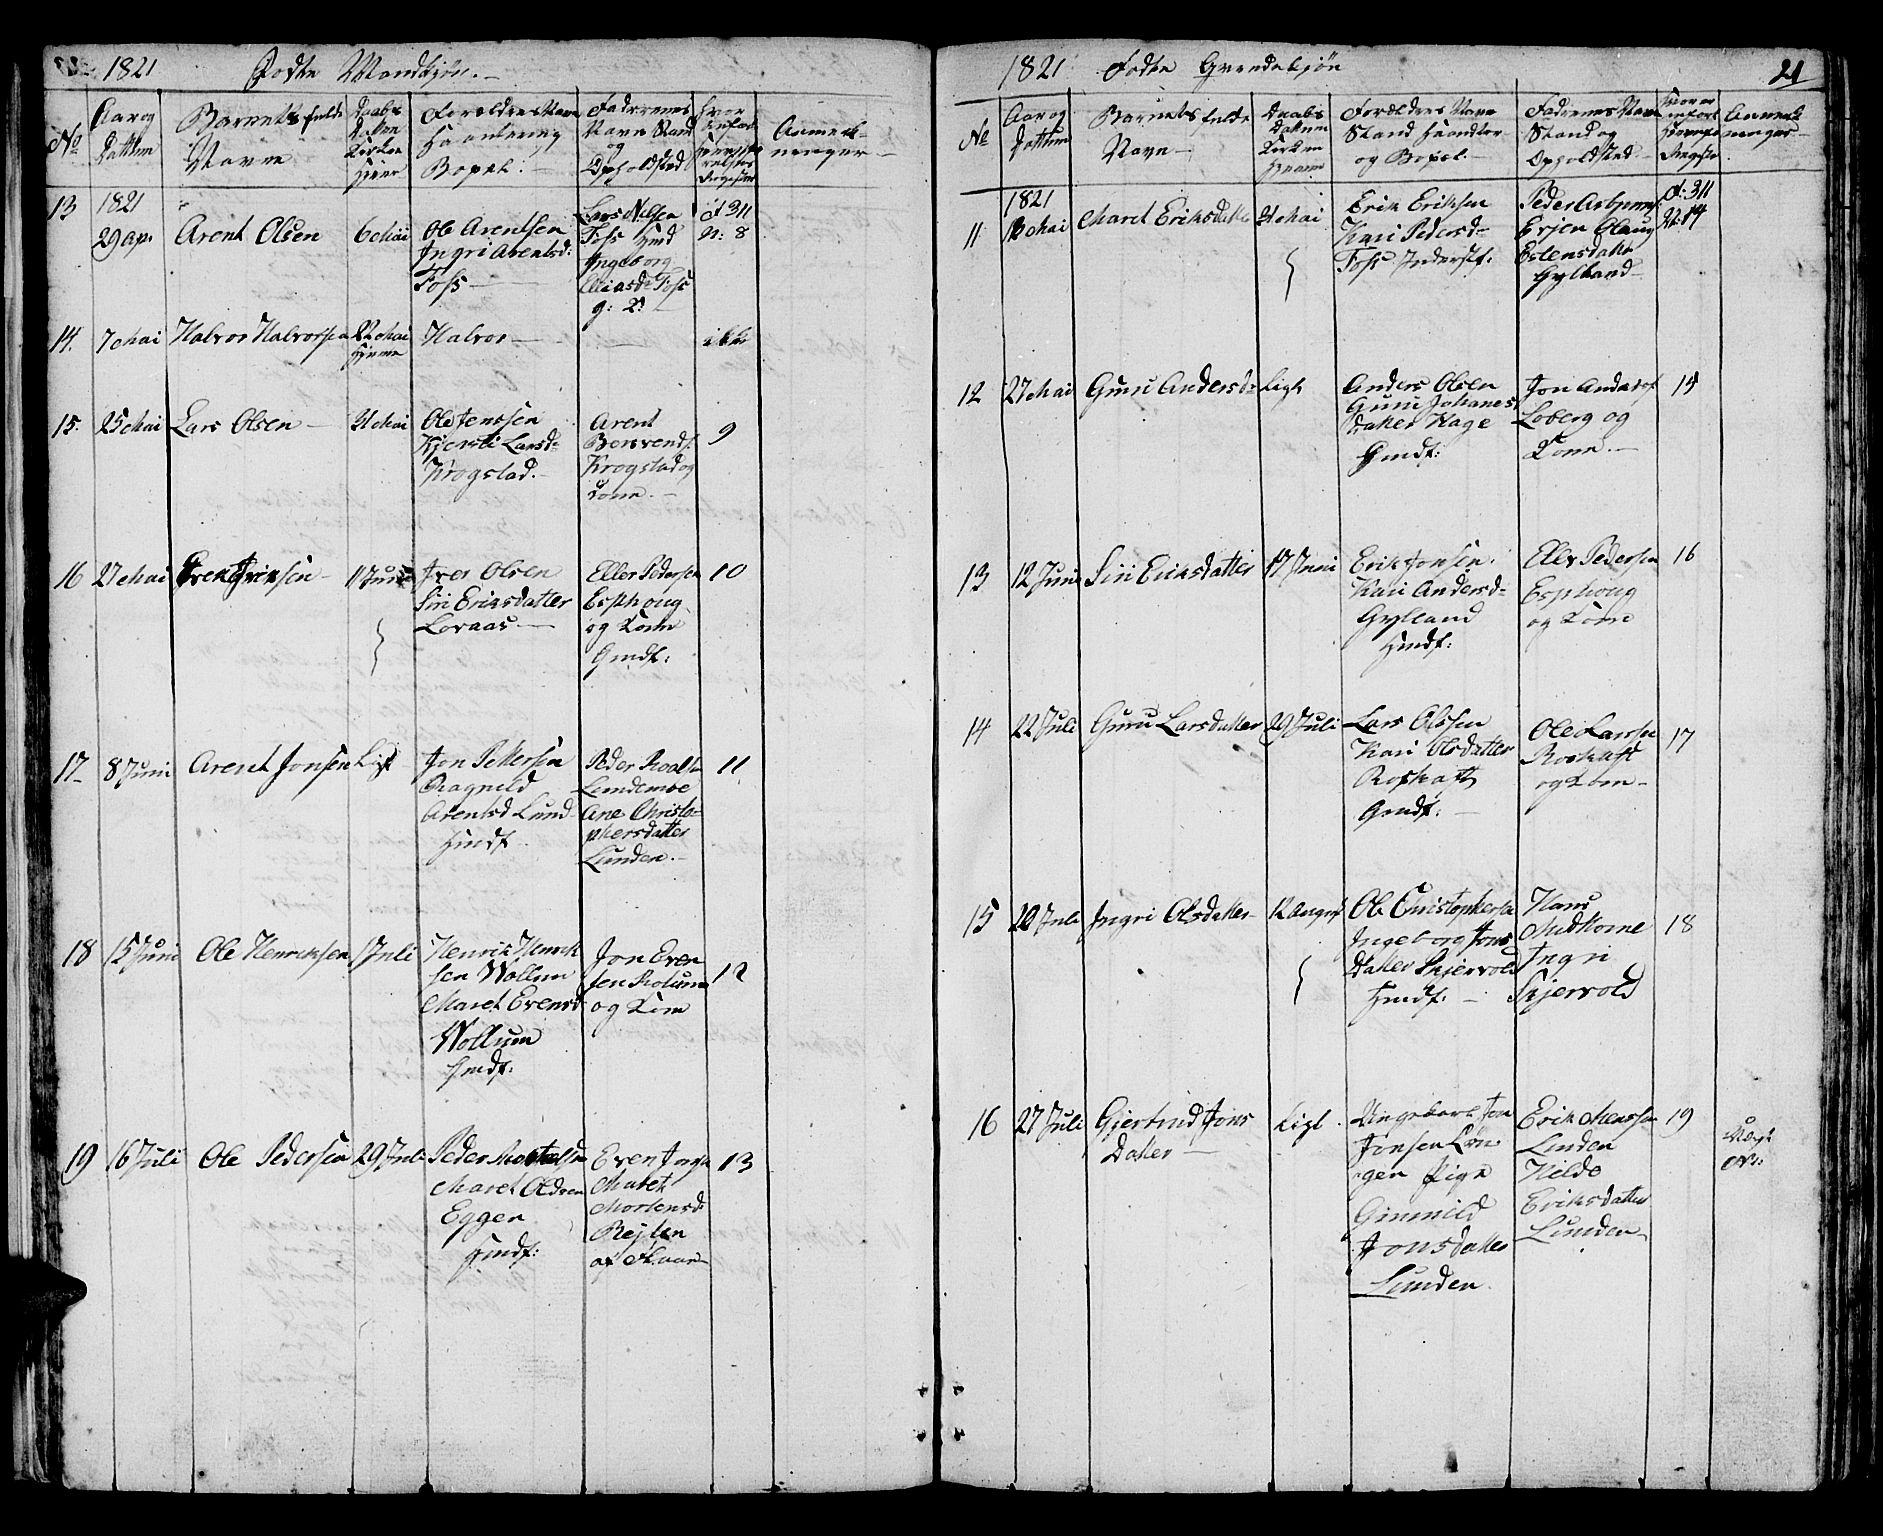 1821 Fødte Mandkjøn.
No
Aar og
Dattum
Barnets fulde
Navne
Daabs
Datum
Kirken
Hiem
Forældres Navn
Haantering
Bopæl.
Faddernes
Navn Stand
og
Opholdsted
Hvor
Anmerk-
ninger
13 1821
29 Ap. Arent Olsen 6 Maii
Ole Arentsen
Ingri Arentsd:
Foss
Lars Nilsen
Foss Gmd
Ingeborg
Eliasd: Foss
g: D:
A 311
N: 8
14. 7 Mai Halvor Halvorsen 22 Mai
Hieme
Halvor
ikke
15. 25 Mai Lars Olsen 31 Mai
Ole Jenssen
Kjersti Larsd:
Krogstad.
Arent
Krogstad og
Kone.
9
16 27 Mai Iversen 11 Juni
Iver Olsen
Siri Eriksdatter
Løraas
Eller Pedersen
Esphoug
og Kone
Gmdf:
10
17 8 Juni Arent Jonsen Ligt
Jon Pettersen
Ragnild
Arentsd Lund
Hmdf.
Peder Roalts
Lundemoe
Ane Christo-
phersdatter
Lunden.
11
18 15 Juni Ole Henriksen 1 Juli
Henrik Henrik
sen Wollum
Maret Evensd
Wollum
Hmdf:
Jon Even
sen Rolum
og Kone
12
19 16 Juli Ole Pedersen 29 Juli
Peder
Maret Oldsen
Eggen
Hmdf:
Even Inga
Maret
Mortensd:
Rejten
af Skaar
13
1821 Fødte Qvindekjøn 21
No
Aar og
Dattum
Barnets fulde
Navn
Daabs
Dattum
Kirken
Hieme
Forældres Navn
Stand Haandter
og Bopæl.
Faddernes Navn
Stand og
Opholdsted
Hvor er
indført
Anmerk-
ninger
1821
11 12 Mai Maret Eriksdatter 31 Mai
Erik Eriksen
Kari Pedersd:
Foss Inderstf:
Peder Asbjørns
Erjen Olaug
Estensdatter
Gylland
A: 311
N: 14
12 27 Mai Guru Andersd: Ligt
Anders Olsen
Guru Johanes
datter Hage
Gmdf:
Jon Andersf
Loberg og
Kone.
15
13 12 Juni Siri Eriksdatter 17 Juni
Erik Jonsen.
Kari Andersd:
Gylland
Hmdf:
Eller Pedersen
Esphoug
og Kone
16
14 22 Juli Guru Larsdatter 29 Juli
Lars Olssen
Kari Olsdatter
Roskaft
Gmdf:
Ole Larsen
Roskaft
og Kone
17
15 20 Juli Ingri Olsdatter 12 August
Ole Christophersen
Ingeborg Jons
datter Skjervold
Hmdf:
Hans
Midthome
Ingri
Skjervold
18
16 27 Juli Gjertrud Jons
datter
Ligt.
Ungekarl Jon
Jonsen Løn
gen Pige
Gunnild
Jonsdatter
Lunden.
Erik Mensen
Lunden
Kildo
Eriksdatter
Lunden
19
Uægt